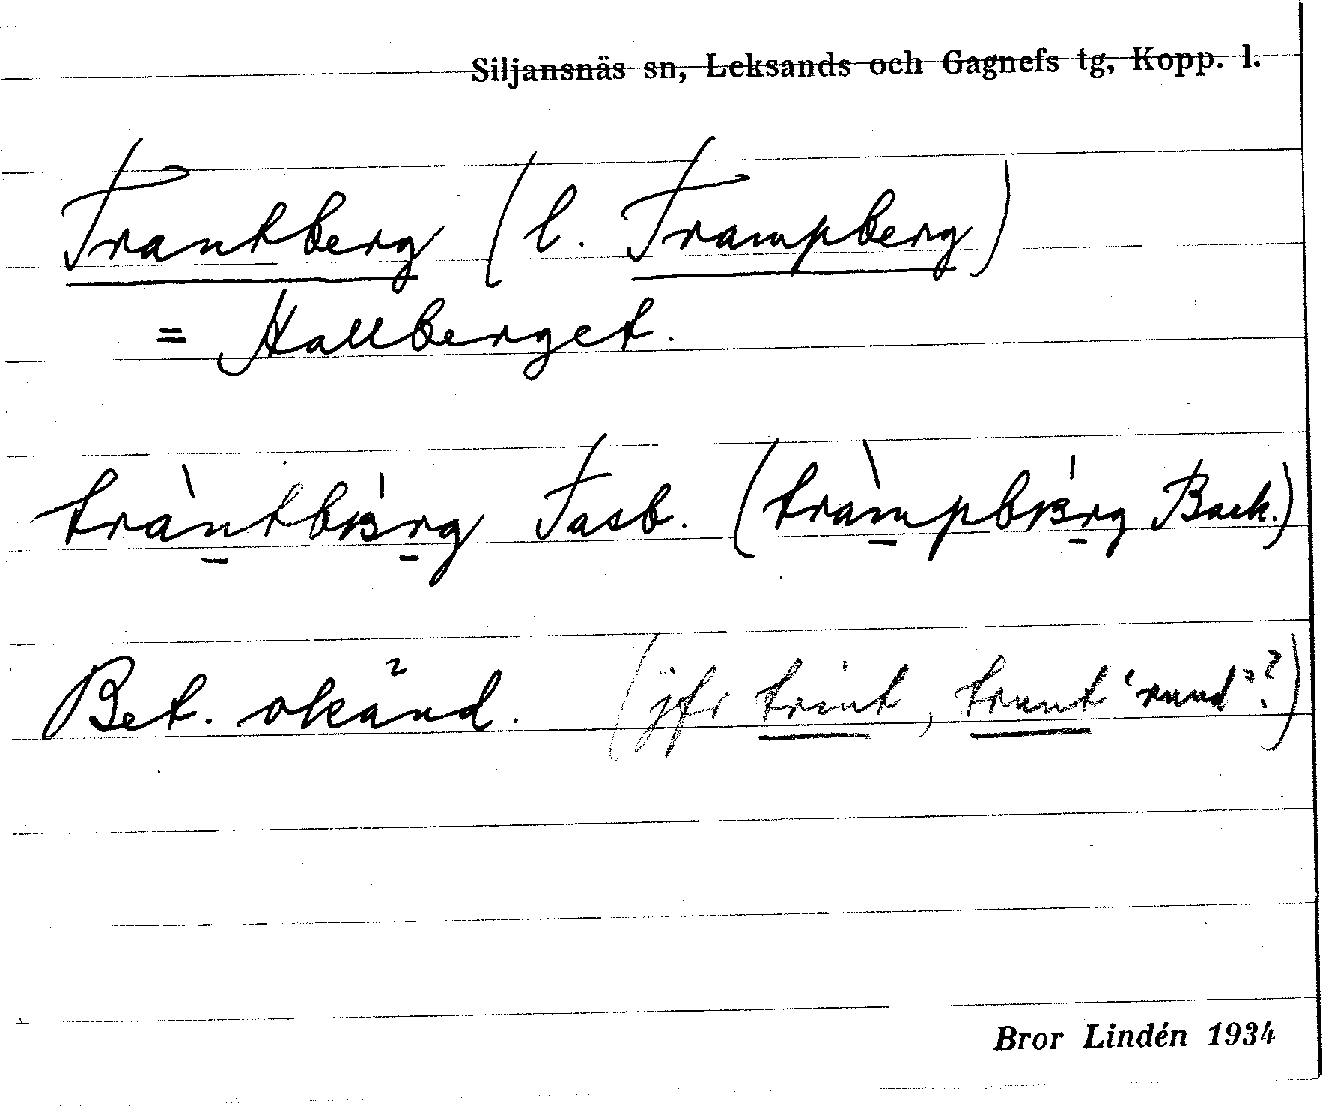 Siljansnäs sn, Leksands och Gagnefs tg, Kopp. l.
Trantberg (l. Trampberg)
= Hallberget.
tràntbä̀rg Tasb. (tràmpbä̀rg Back.)
Bet. okänd. (jfr trint, trunt 'rund'?)
Bror Lindén 1934